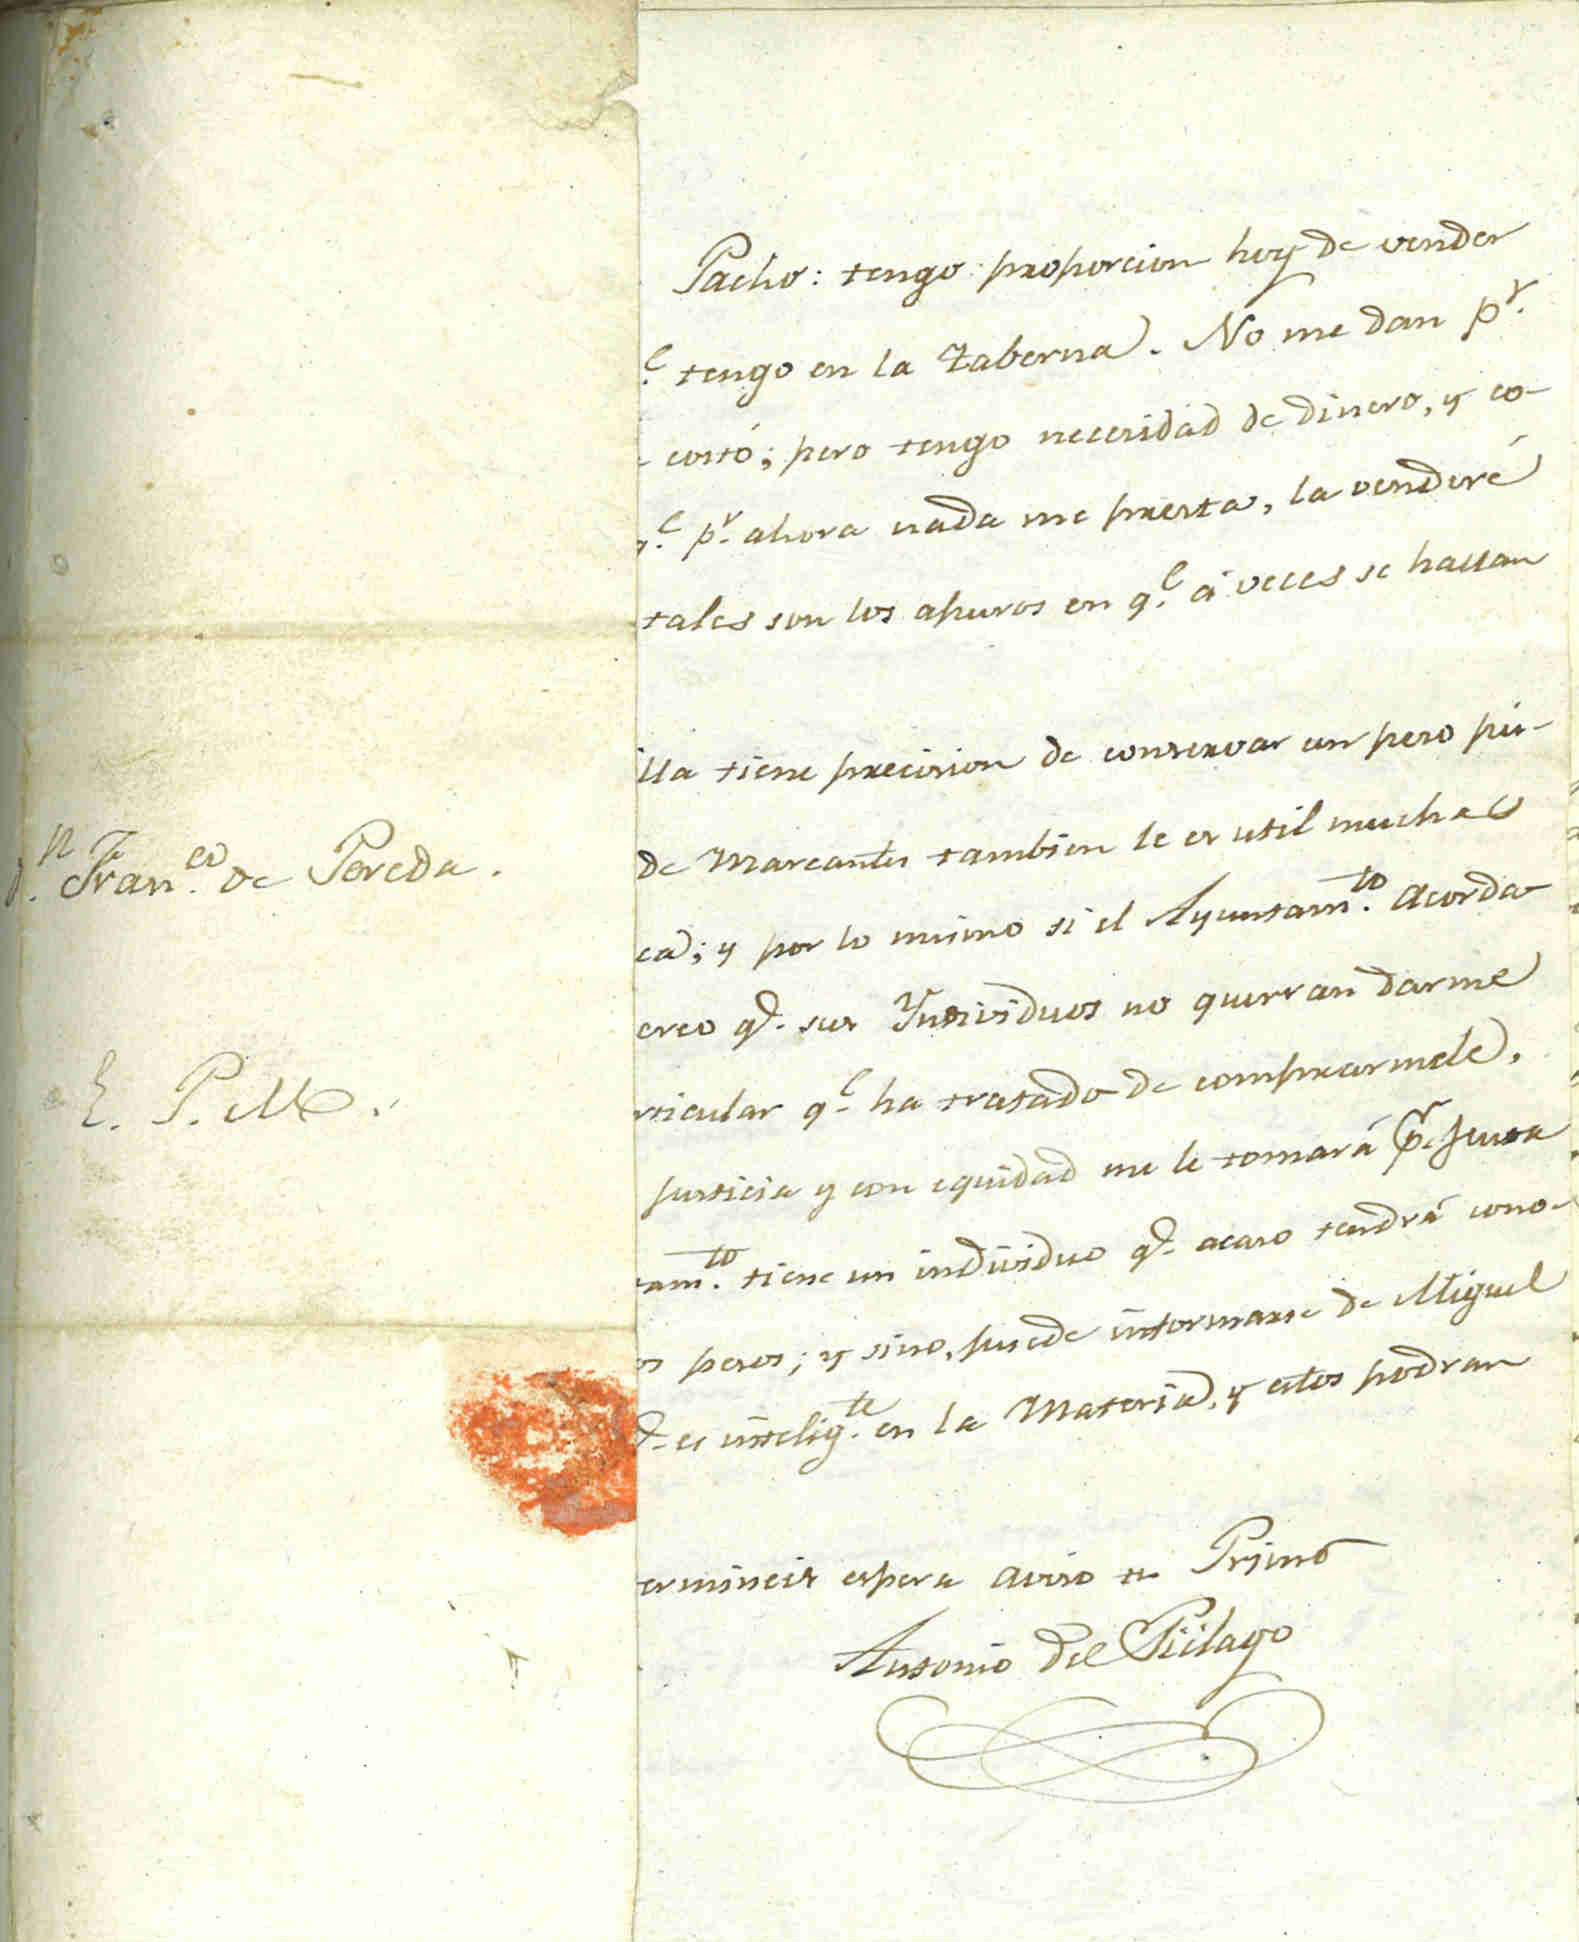 d.n Fran.co de Pereda.
E. P. M.
Pacho: tengo proporcion hoy de vender
tengo en la taberna. No me dan p.r
costó; pero tengo necesidad de dinero, y co-
q.e p.r ahora nada me presta, la venderé
tales son los apuros en q.e á veces se hallan
illa tiene precision de conservar un peso pú-
de Mareantes tambien le es util muchas
ca; y por lo mismo si el Ayuntam.to acorda
creo q.e sus Yndividuos no querran darme
rticular q.e ha tratado de comprarmele.
justicia y con equidad me le tomará p.r Junta
tam.to tiene un individuo q.e acaso tendrá cono-
os pesos; y sino, puede informarse de Miguel
es intelig.te en la Materia, y estos podran
ermineis espera aviso tu Primo
Antonio del Piélago